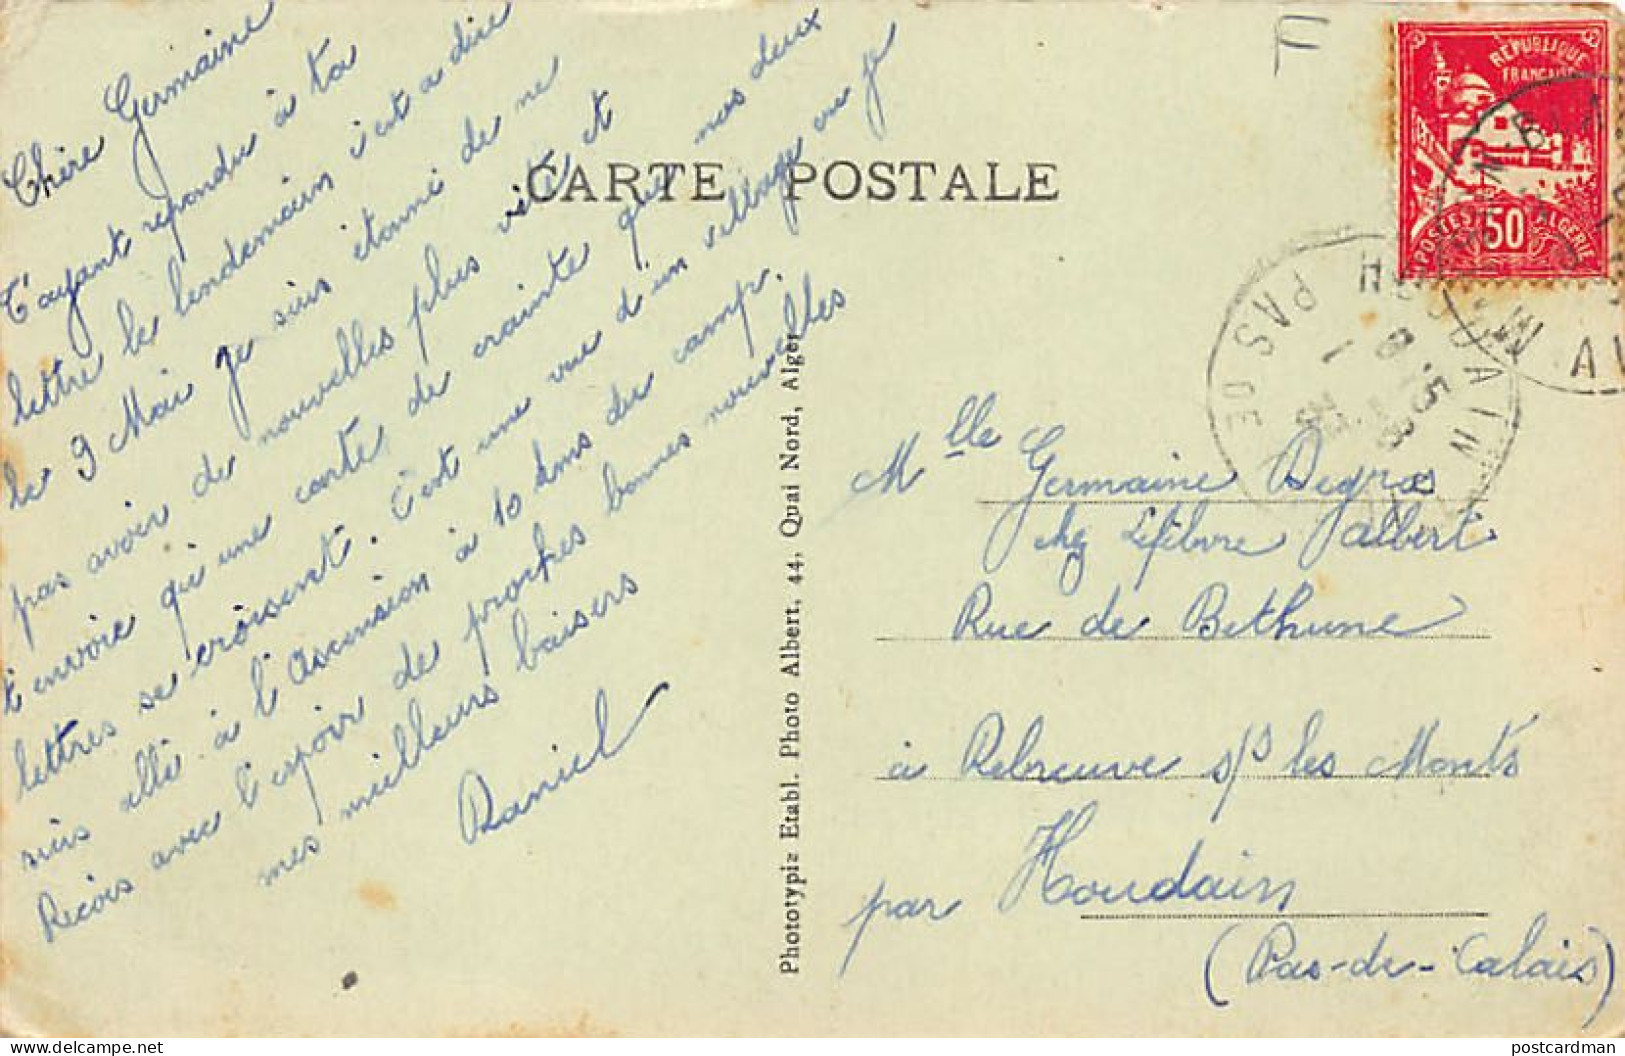 Chère Germaine
T'ayant repondu à ta
lettre le lendemain c'est a dire
le 9 Mai je suis étonné de ne
pas avoir de nouvelles plus vite et
t'envoie qu'une carte de crainte que nos deux
lettres se croisent. C'est une vue d'un village où je
suis allé à l'Ascension à 10 kms du camp.
Reçois avec l'espoir de proches bonnes nouvelles
mes meilleurs baisers
Daniel
CARTE POSTALE
Phototypie Etabl. Photo Albert, 44, Quai Nord, Alger
RÉPUBLIQUE
FRANÇAISE
50
POSTES ALGÉRIE
HOUDAIN
PAS DE
Mlle Germaine Degras
chez Lefebvre Albert
Rue de Bethune
à Rebreuve s/s les Monts
par Houdain
(Pas-de-Calais)
postcardman